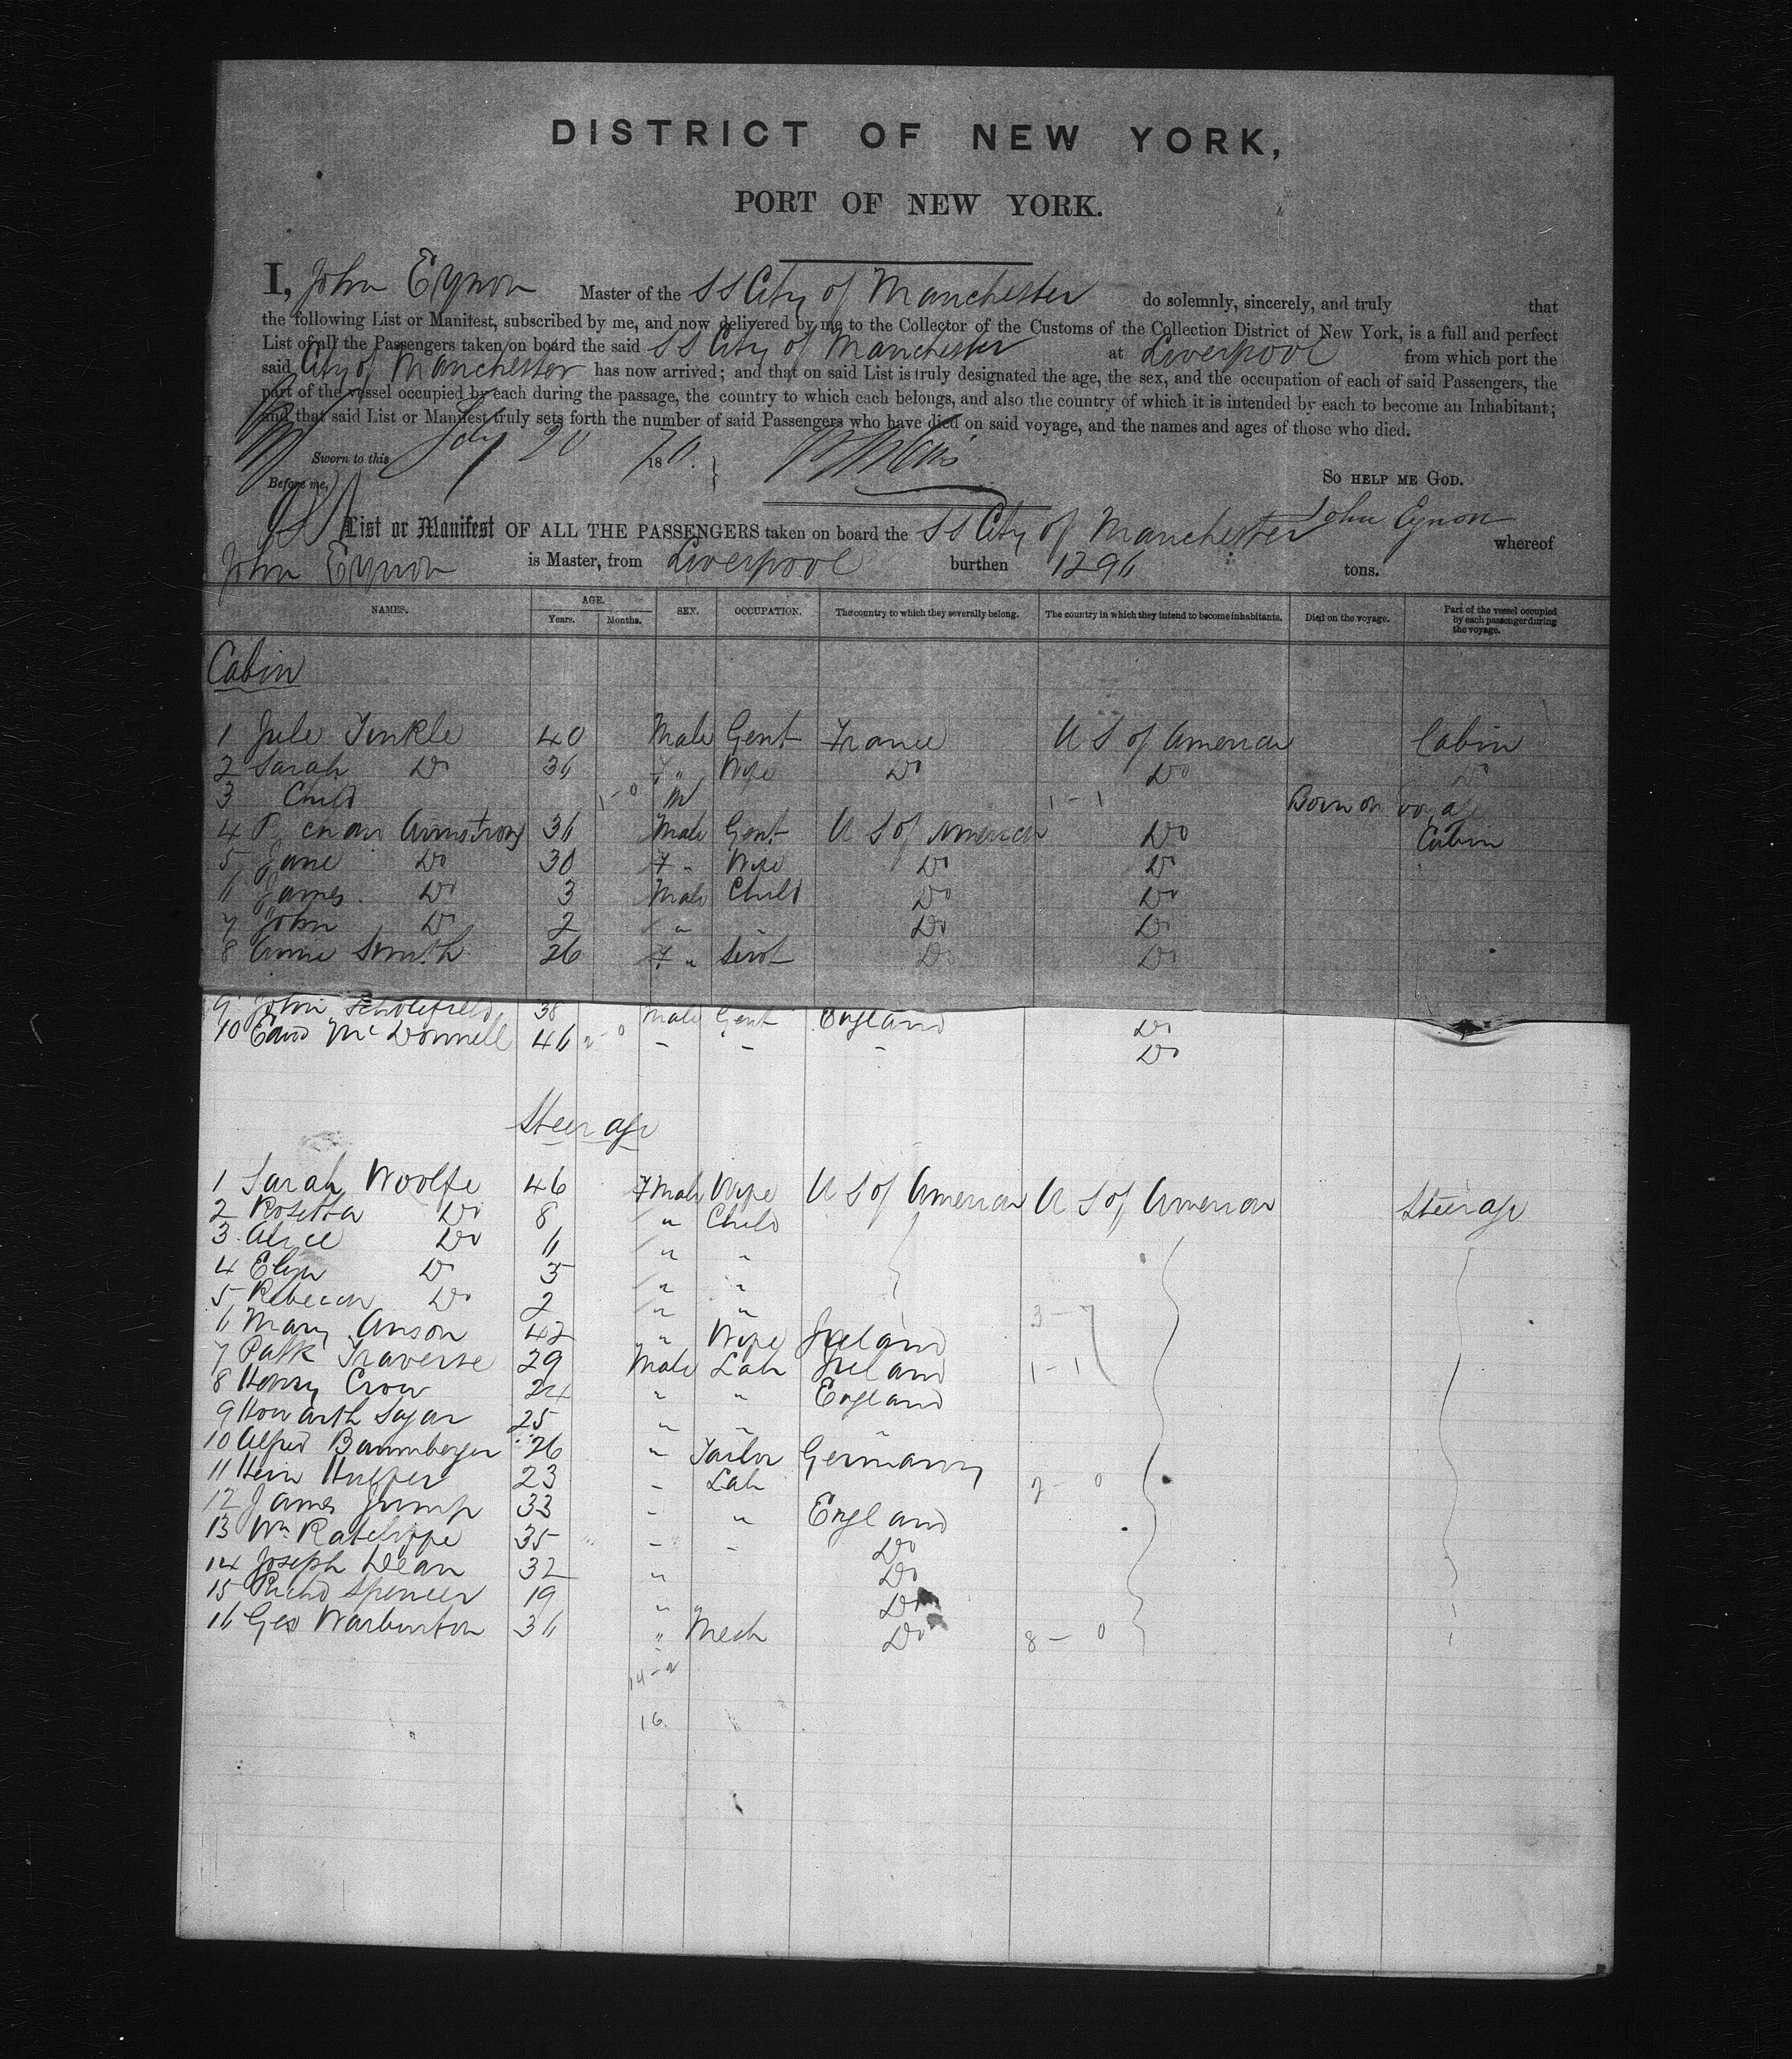 DISTRICT OF NEW YORK,
PORT OF NEW YORK.
I, John Eynon Master of the S S City of Manchester do solemnly, sincerely, and truly that
the following List or Manifest, subscribed by me, and now delivered by me to the Collector of the Customs of the Collection District of New York, is a full and perfect
List of all the Passengers taken on board the said S S City of Manchester at Liverpool from which port the
said City of Manchester has now arrived; and that on said List is truly designated the age, the sex, and the occupation of each of said Passengers, the
part of the vessel occupied by each during the passage, the country to which each belongs, and also the country of which it is intended by each to become an Inhabitant;
and that said List or Manifest truly sets forth the number of said Passengers who have died on said voyage, and the names and ages of those who died.
Sworn to this July 1870.
Before me,
SO HELP ME GOD.
John Eynon
List or Manifest OF ALL THE PASSENGERS taken on board the S S City of Manchester whereof
John Eynon is Master, from Liverpool burthen 1296 tons.
NAMES. AGE. Years. Months. SEX. OCCUPATION. The country to which they severally belong. The country in which they intend to become inhabitants. Died on the voyage. Part of the vessel occupied by each passenger during the voyage.
Cabin
1 Jule Tinkle 40 Male Gent France U S of America Cabin
2 Sarah Do 36 F " Wife Do Do Do
3 Child 1-0 M 1-1 Born on voyage
4 Armstrong 36 Male Gent U S of America Do Cabin
5 Jane Do 30 F " Wife Do Do
6 James Do 3 Male Child Do Do
7 John Do 2 " Do Do
8 Annie Smith 26 F " Servt Do Do
9 John Scholefield 38 Male Gent England Do
10 Edwd McDonnell 46 2-0 - - - Do
Steerage
1 Sarah Woolfe 46 FMale Wife U S of America U S of America Steerage
2 Rosetta Do 8 " Child
3 Alice Do 6 " "
4 Eliza Do 3 " "
5 Rebecca Do 2 " "
6 Mary Anson 42 " Wife Ireland 3-7
7 Patk Traverse 29 Male Lab Ireland 1-1
8 Henry Crow 24 " " England
9 Howarth Sagar 25 " " "
10 Alfred Baumberger 26 " Tailor Germany
11 Hein 23 - Lab 2-0
12 James Jump 33 - " England
13 Wm Ratcliffe 35 - - Do
14 Joseph Dean 32 " Do
15 Richd Spencer 19 " " Do
16 Geo Warburton 36 " Mech Do 8-0
14-2
16